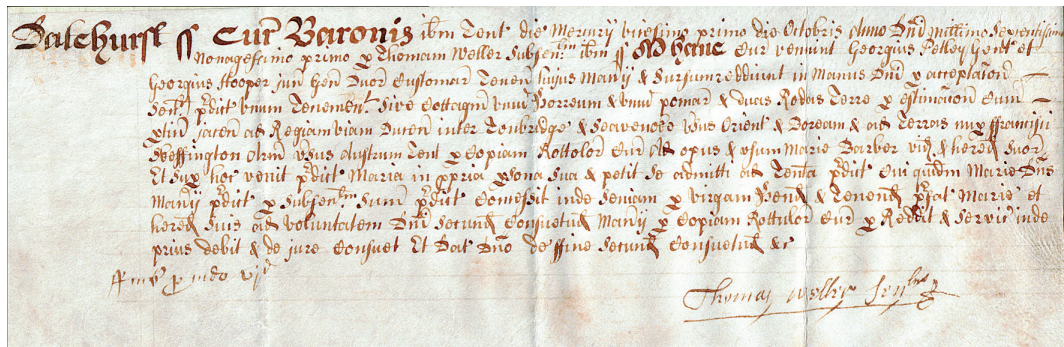 Dalehurst ss Cur Baronis ibm Tent die Mercurij vicesimo primo die Octobris Anno Dni Millimo Sexcentesimo
Nonagessimo primo p Thomam Weller Subsen ibm ss Ad hanc Cur venunt Georgius Petley Gent et
Georgius Hooper jun Gen Duo Customar Tenen hujus Manij & Sursum reddidunt in Manus Dni p acceptation
Sen pdict unum Tenement Sive Cottagm unu Horreum & unu pomar & duas Rodas Terre p estimation Cum
ptin jacen ad Regiam viam Ducen inter Tonbridge & Seavenoke vsus Orient & Boream & ad Terras nup Francisci
Skeffington Arm vsus Austrum Tent p Copiam Rottolor Cur Ad opus & usum Marie Barber vid & hered suor
Et sup hoc venit pdict Maria in ppria psona sua & petit se admitti ad Tenta pdict Cui quidm Marie Dns
Manij pdict p Subsen Suum pdict Concessit inde Seisinam p virgam Hend & Tenend pfat Marie et
hered suis ad voluntatem Dni Secund Consuetud Manij p Copiam Rottulor Cur p Reddit & Servic inde
prius debit & de jure Consuet Et Dat Dno de ffine Secund Consuetud &c
Thomas Weller